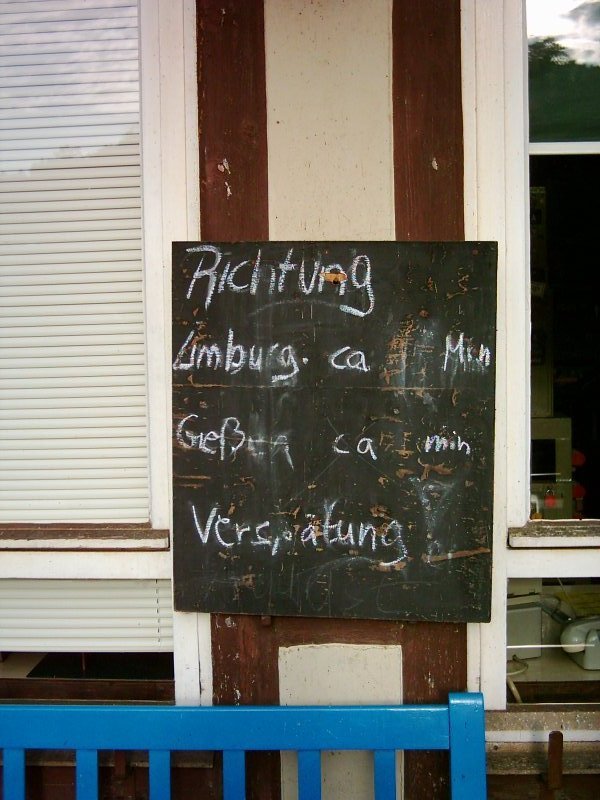 Richtung
Limburg. ca Min
Gießen ca min
Verspätung